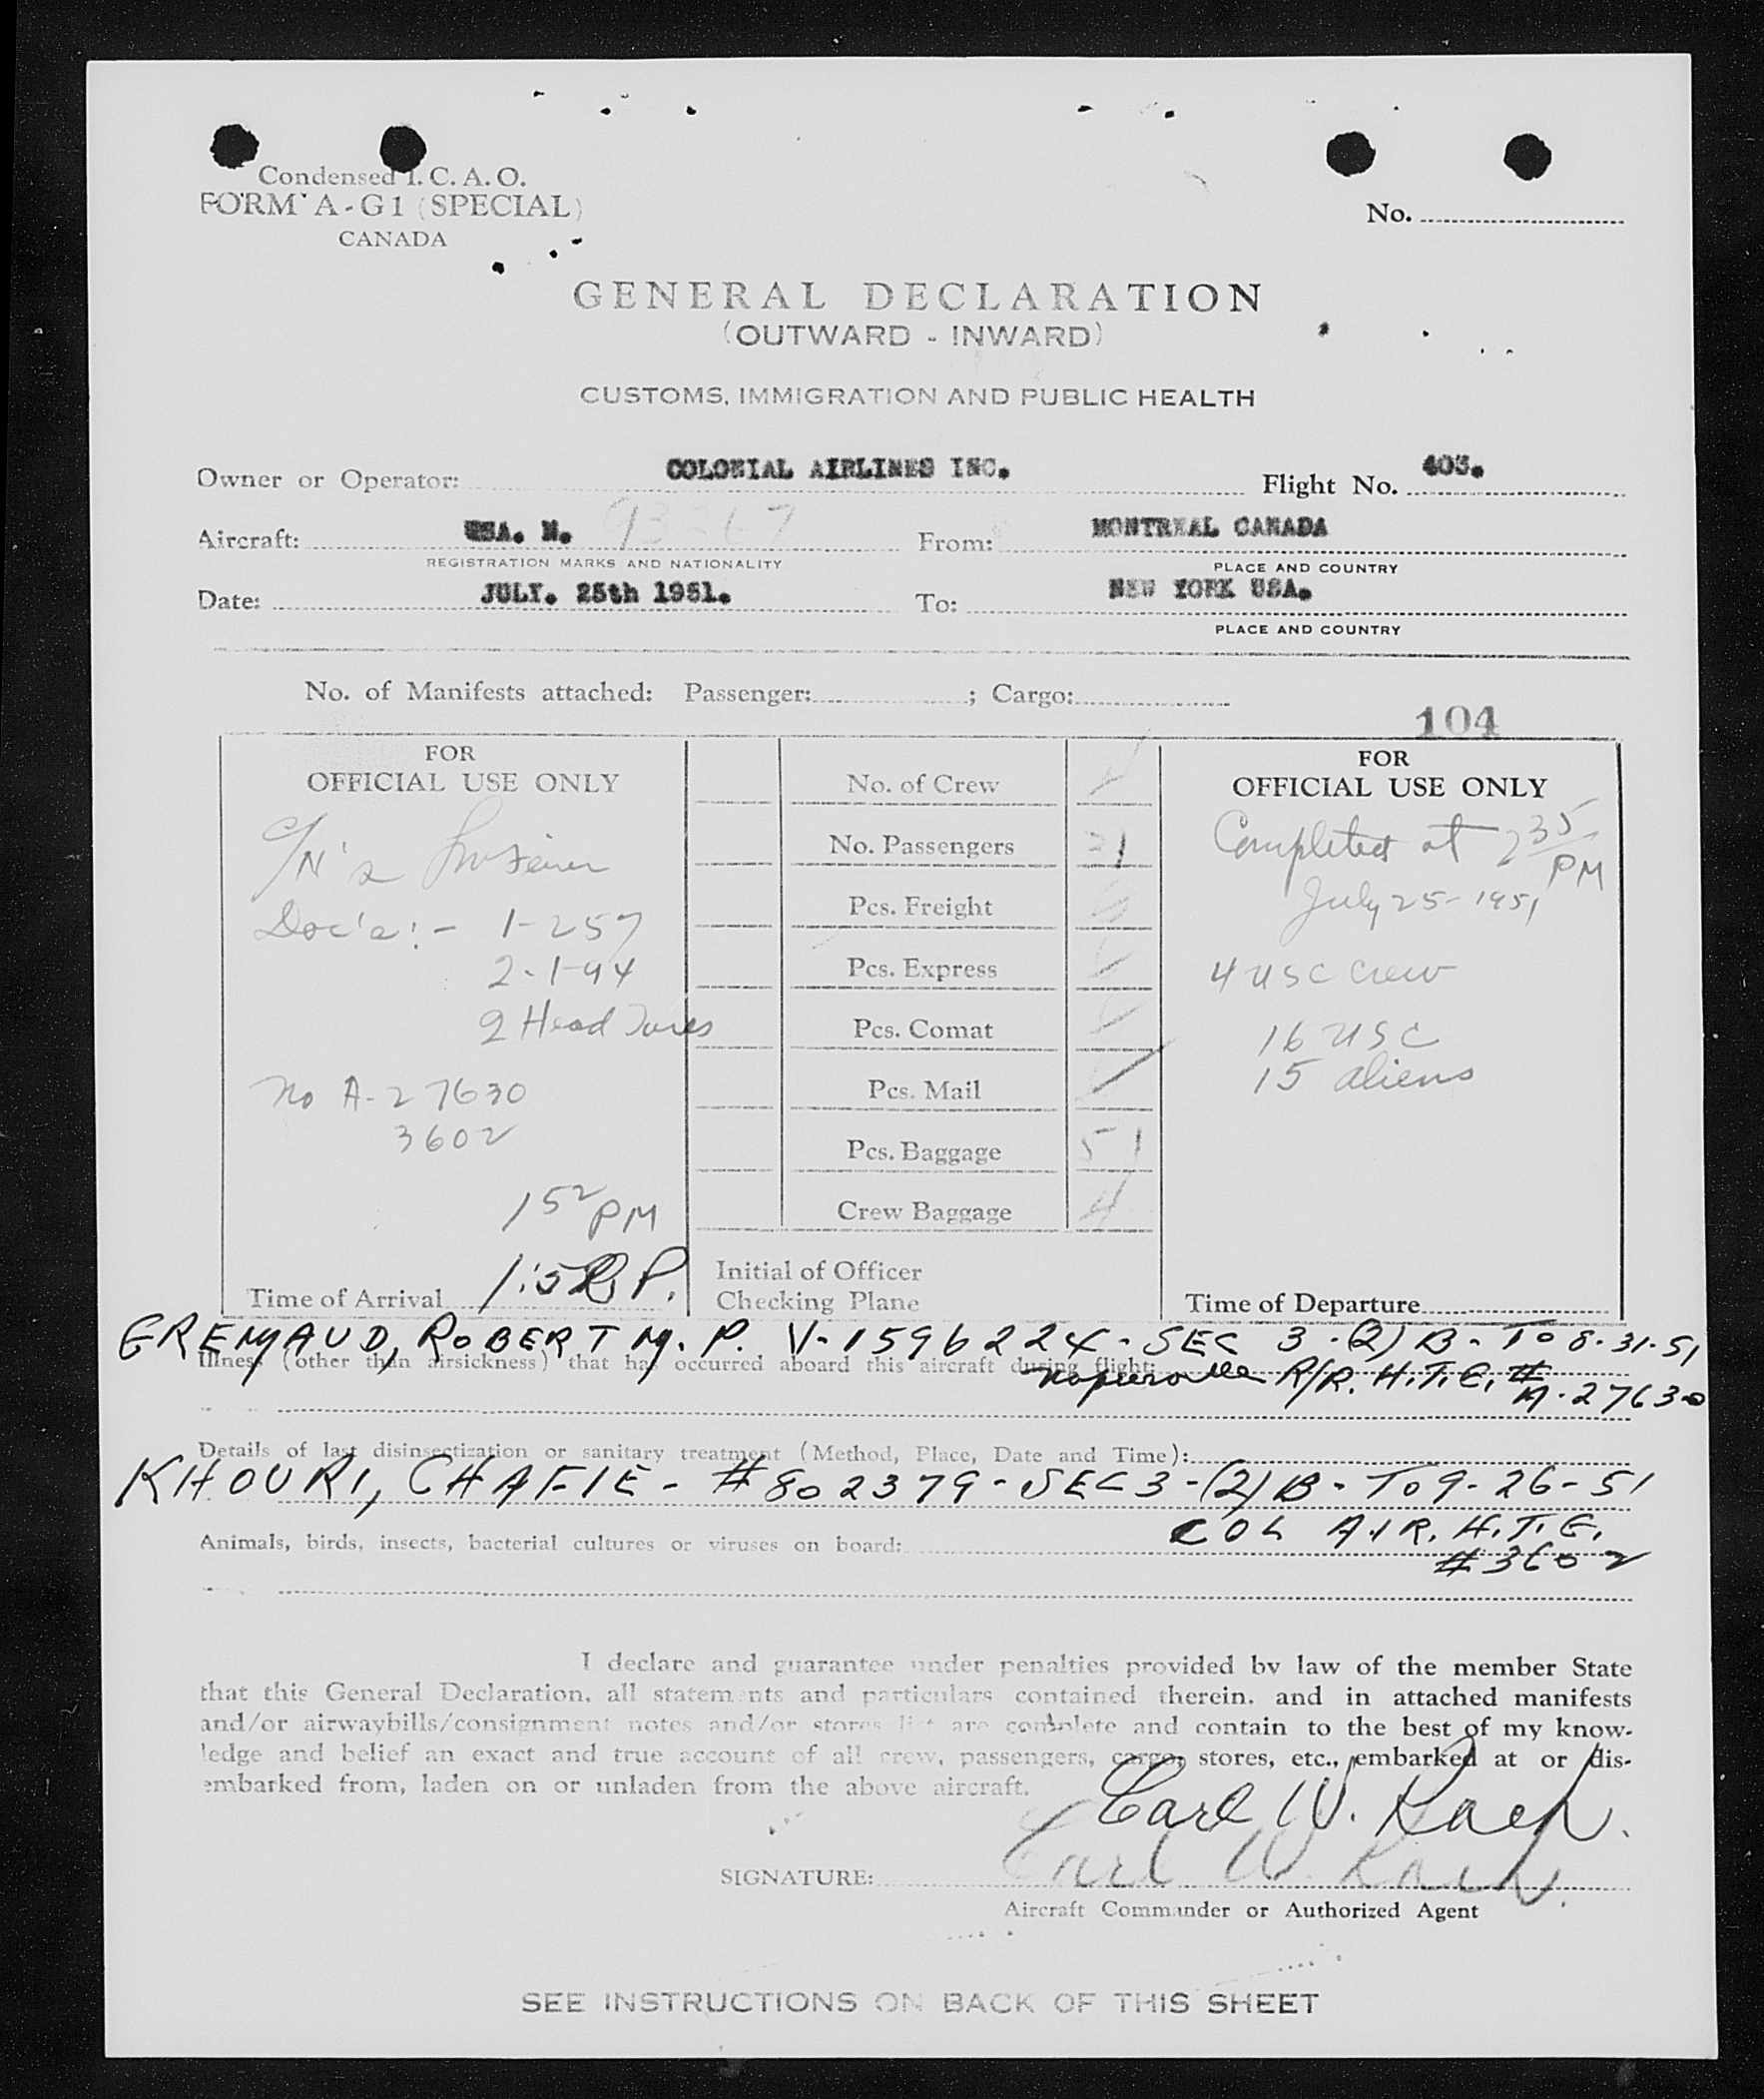 Condensed I. C. A. O.
FORM A-G1 (SPECIAL)
CANADA
No.
GENERAL DECLARATION
(OUTWARD - INWARD)
CUSTOMS, IMMIGRATION AND PUBLIC HEALTH
Owner or Operator: COLONIAL AIRLINES INC. Flight No. 403.
Aircraft: USA. N. 93267 From: MONTREAL CANADA
REGISTRATION MARKS AND NATIONALITY PLACE AND COUNTRY
Date: JULY. 25th 1951. To: NEW YORK USA.
PLACE AND COUNTRY
No. of Manifests attached: Passenger: ; Cargo:
104
FOR
OFFICIAL USE ONLY
Doc's:- 1-257
2-1-94
2 Head Taxes
No A-27630
3602
152 PM
Time of Arrival 1:52 P.
No. of Crew
No. Passengers 31
Pcs. Freight
Pcs. Express
Pcs. Comat
Pcs. Mail
Pcs. Baggage 51
Crew Baggage 4
Initial of Officer
Checking Plane
FOR
OFFICIAL USE ONLY
Completed at 235 PM
July 25-1951
4 USC Crew
16 USC
15 aliens
Time of Departure
GREMAUD, ROBERT M. P. V-1596224-SEC 3-(2)B-TO 8-31-51
Illness (other than airsickness) that has occurred aboard this aircraft during flight:
R/R. H.T.E. #
A-27630
Details of last disinsectization or sanitary treatment (Method, Place, Date and Time):
KHOURI, CHAFIE - #802379-SEC 3-(2)B-TO 9-26-51
COL AIR. H.T.E.
Animals, birds, insects, bacterial cultures or viruses on board:
#3602
I declare and guarantee under penalties provided by law of the member State
that this General Declaration, all statements and particulars contained therein, and in attached manifests
and/or airwaybills/consignment notes and/or stores list are complete and contain to the best of my know-
ledge and belief an exact and true account of all crew, passengers, cargo, stores, etc., embarked at or dis-
embarked from, laden on or unladen from the above aircraft.
Carl W.
SIGNATURE: Carl W.
Aircraft Commander or Authorized Agent
SEE INSTRUCTIONS ON BACK OF THIS SHEET